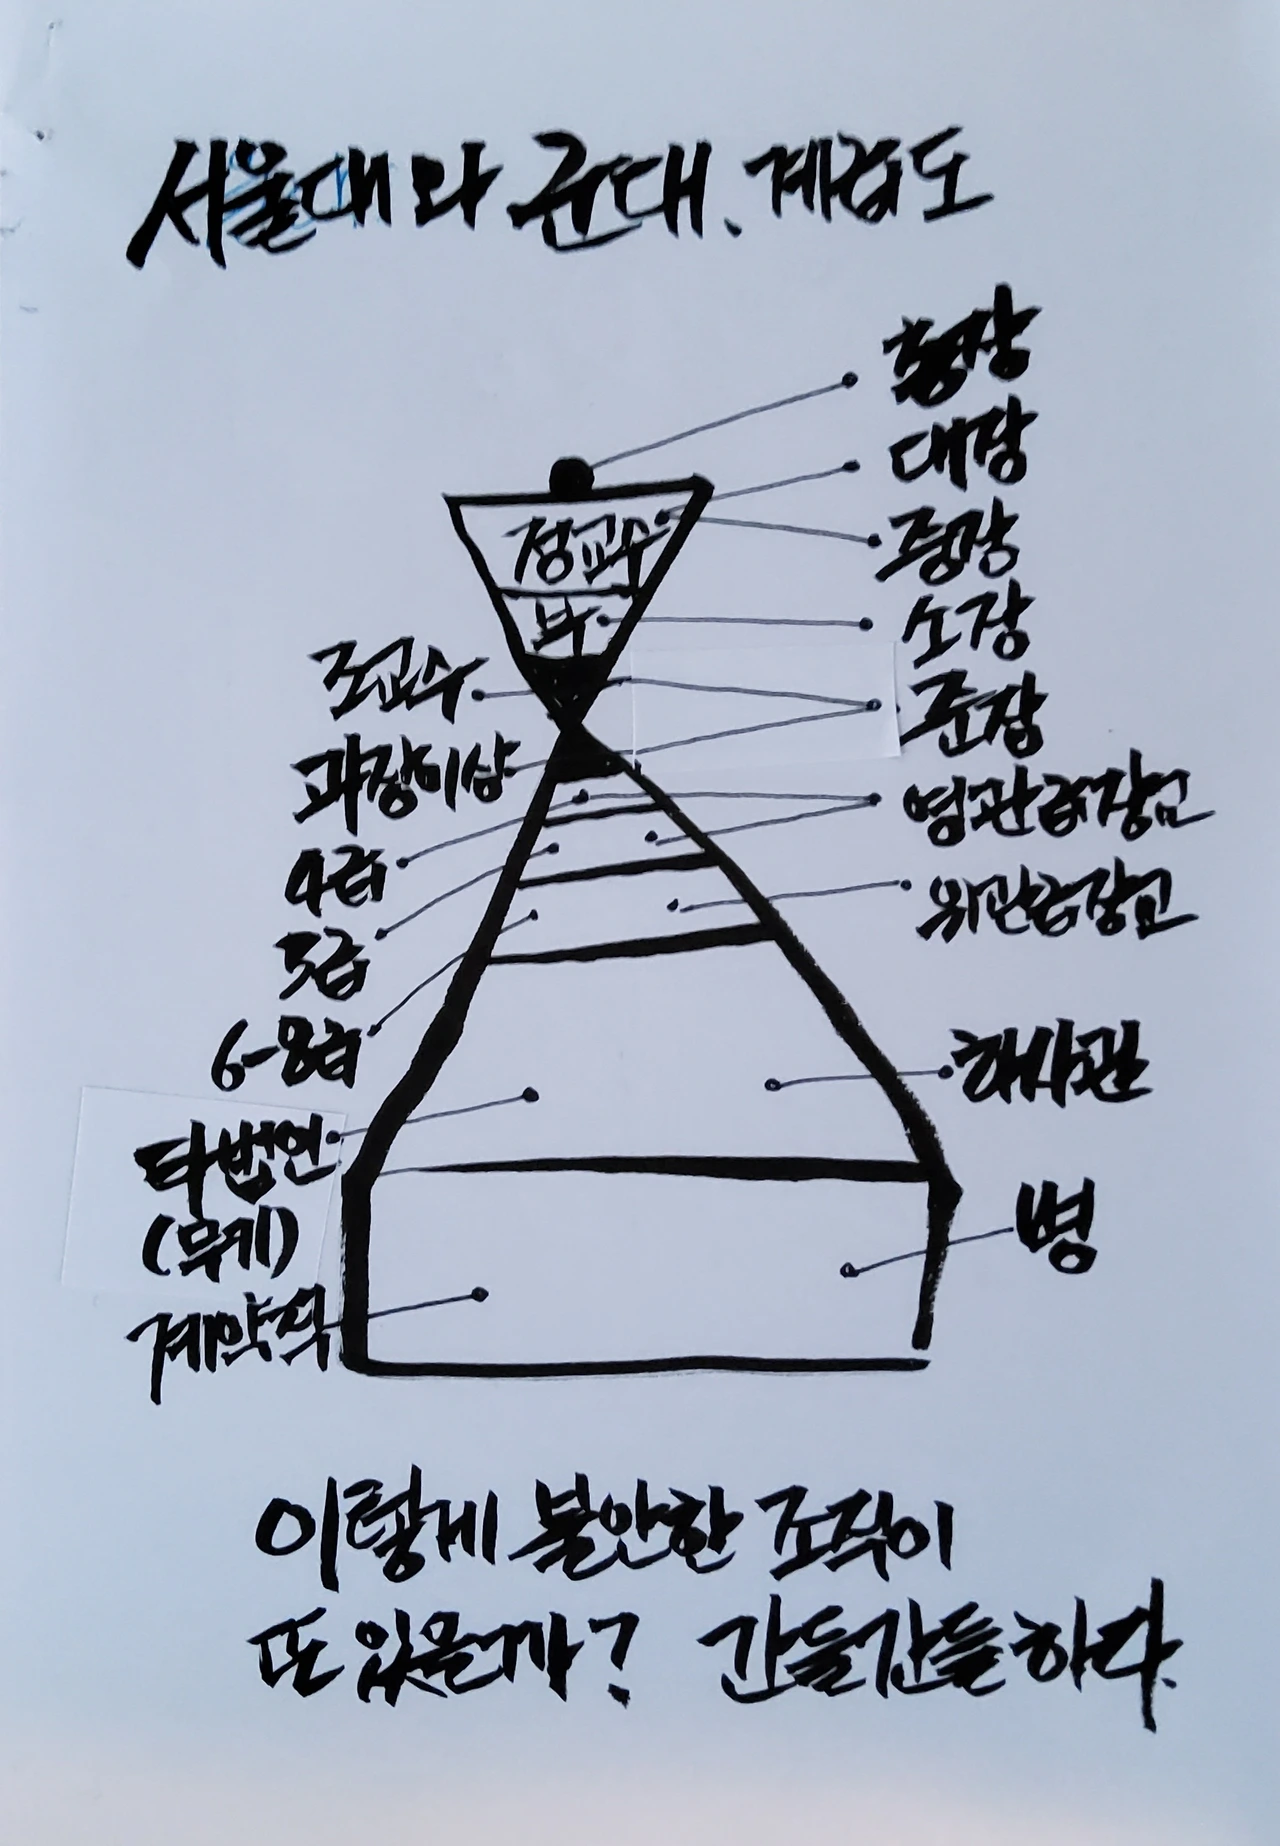 서울대와 군대. 계급도
총장
대장
중장
소장
준장
영관급장교
위관급장교
하사관
병
정교수
부
조교수
과장이상
4급
5급
6-8급
타법인
(무기)
계약직
이렇게 불안한 조직이
또 있을까? 간들간들하다.